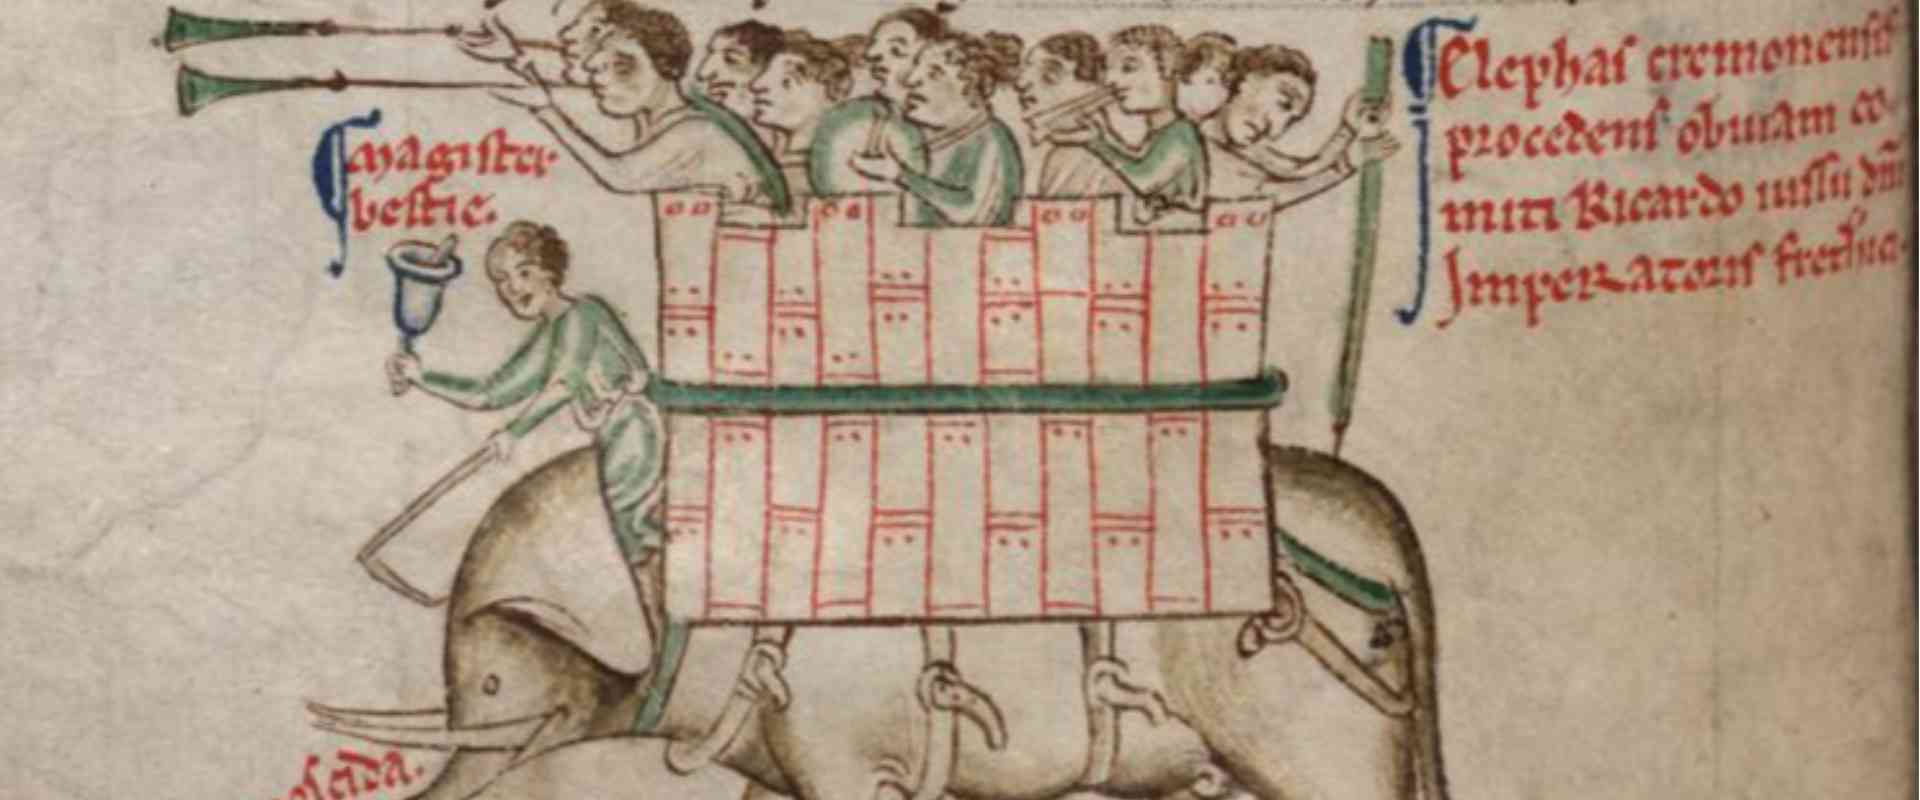 magister
bestie.
Elephas cremonensis
procedens obuiam co-
miti Ricardo iussu dñi
Imperatoris fretheri